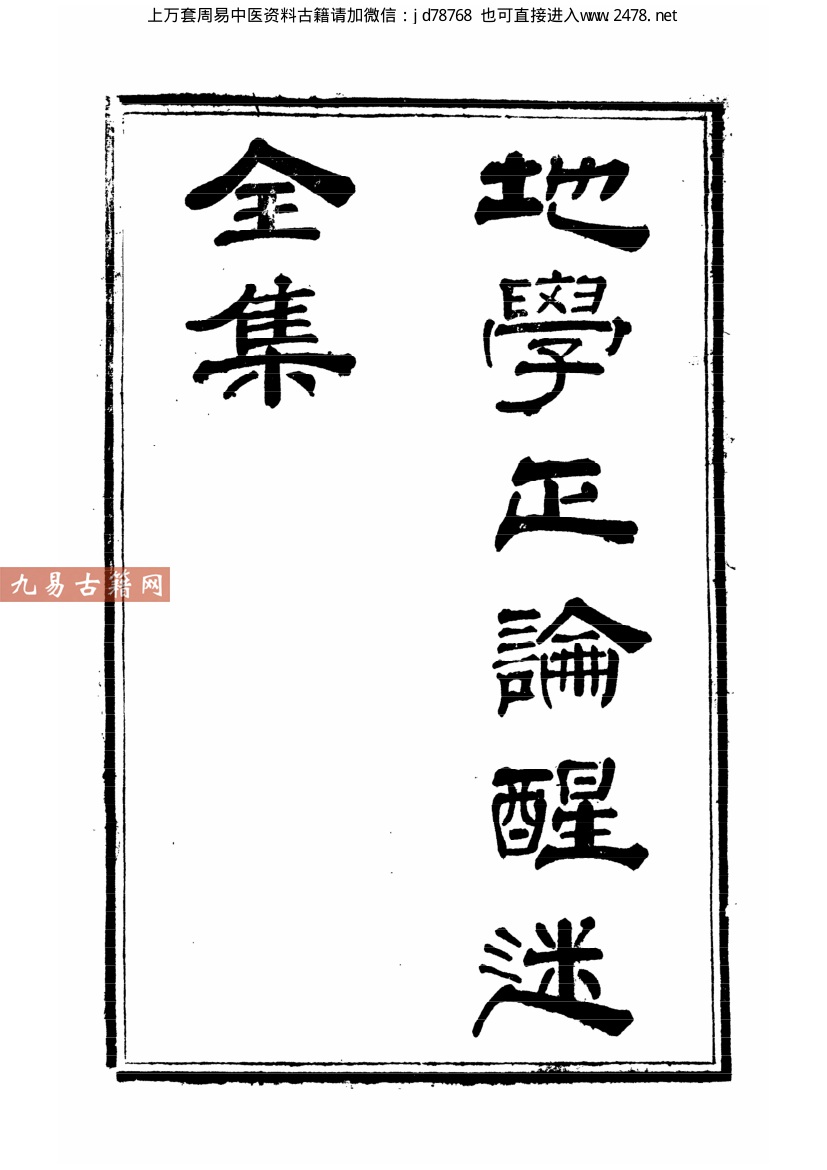 上万套周易中医资料古籍请加微信：jd78768 也可直接进入www.2478.net
地學正論醒迷
全集
九易古籍网